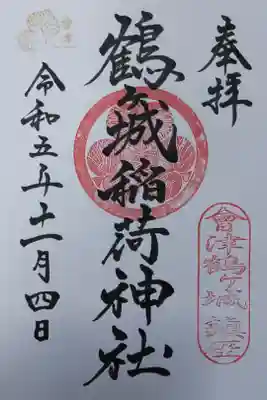 奉拝
會津鶴ヶ城鎮座
鶴ヶ城稲荷神社
令和五年十一月四日